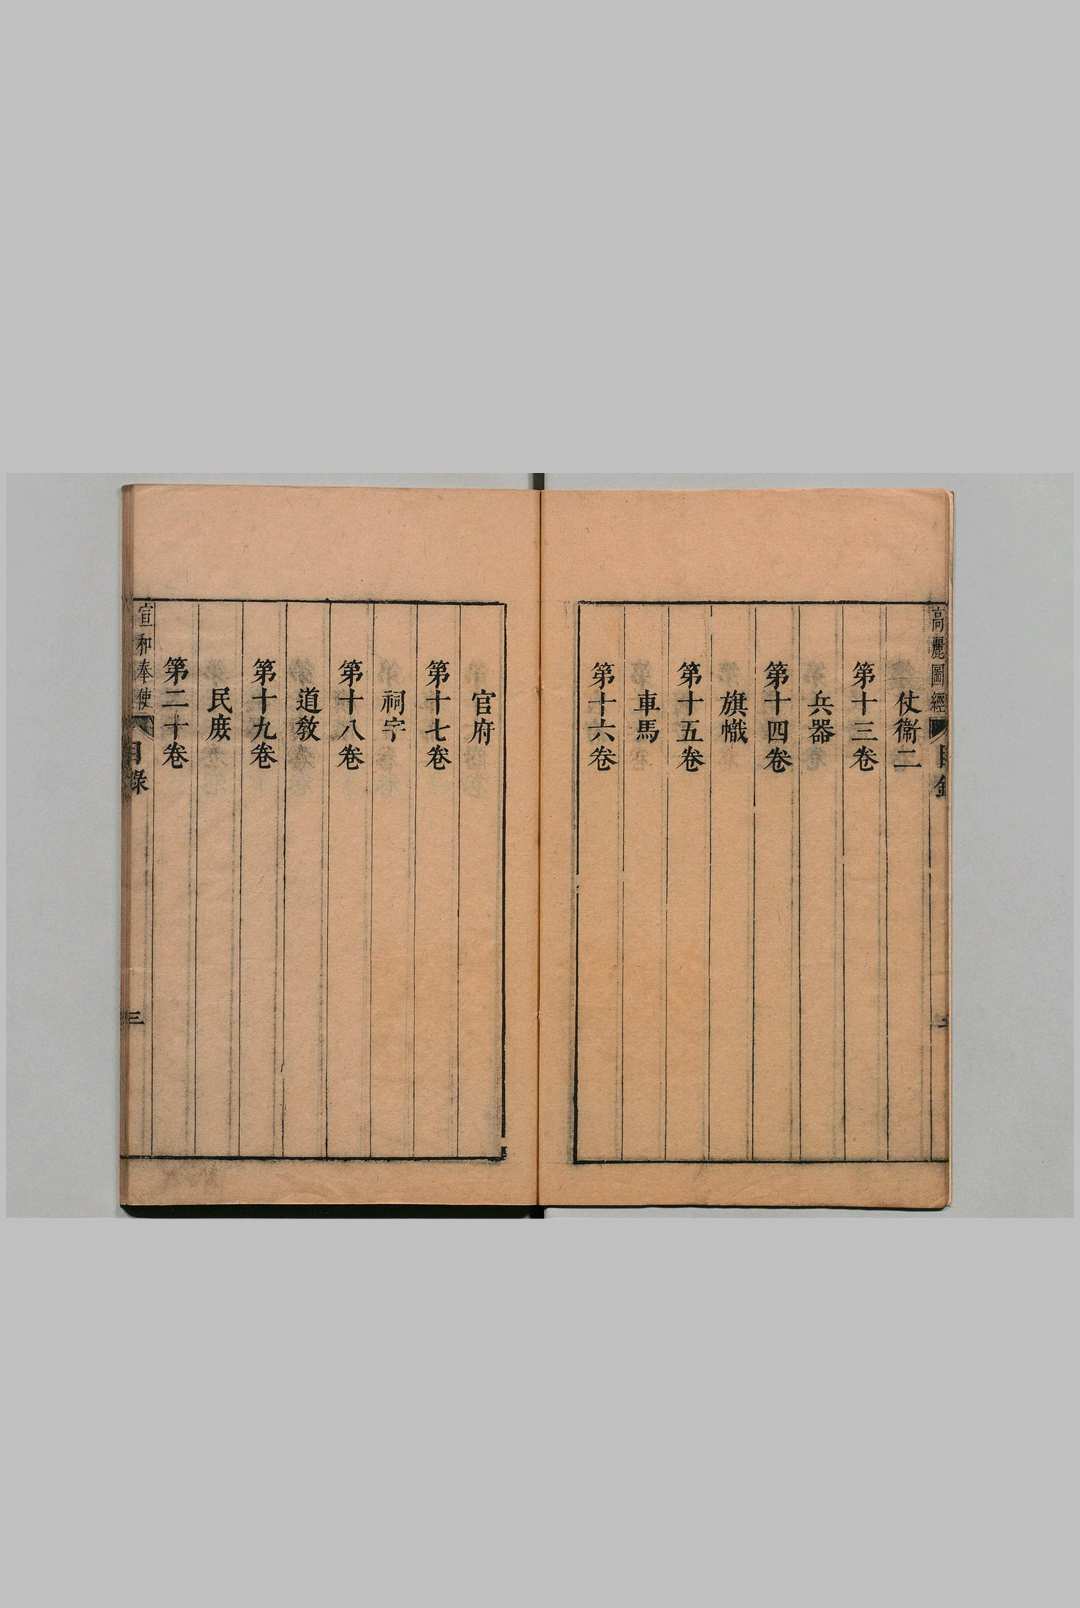 高麗圖經
目錄
仗衞二
第十三卷
兵器
第十四卷
旗幟
第十五卷
車馬
第十六卷
官府
第十七卷
祠宇
第十八卷
道敎
第十九卷
民庻
第二十卷
宣和奉使
目錄
三